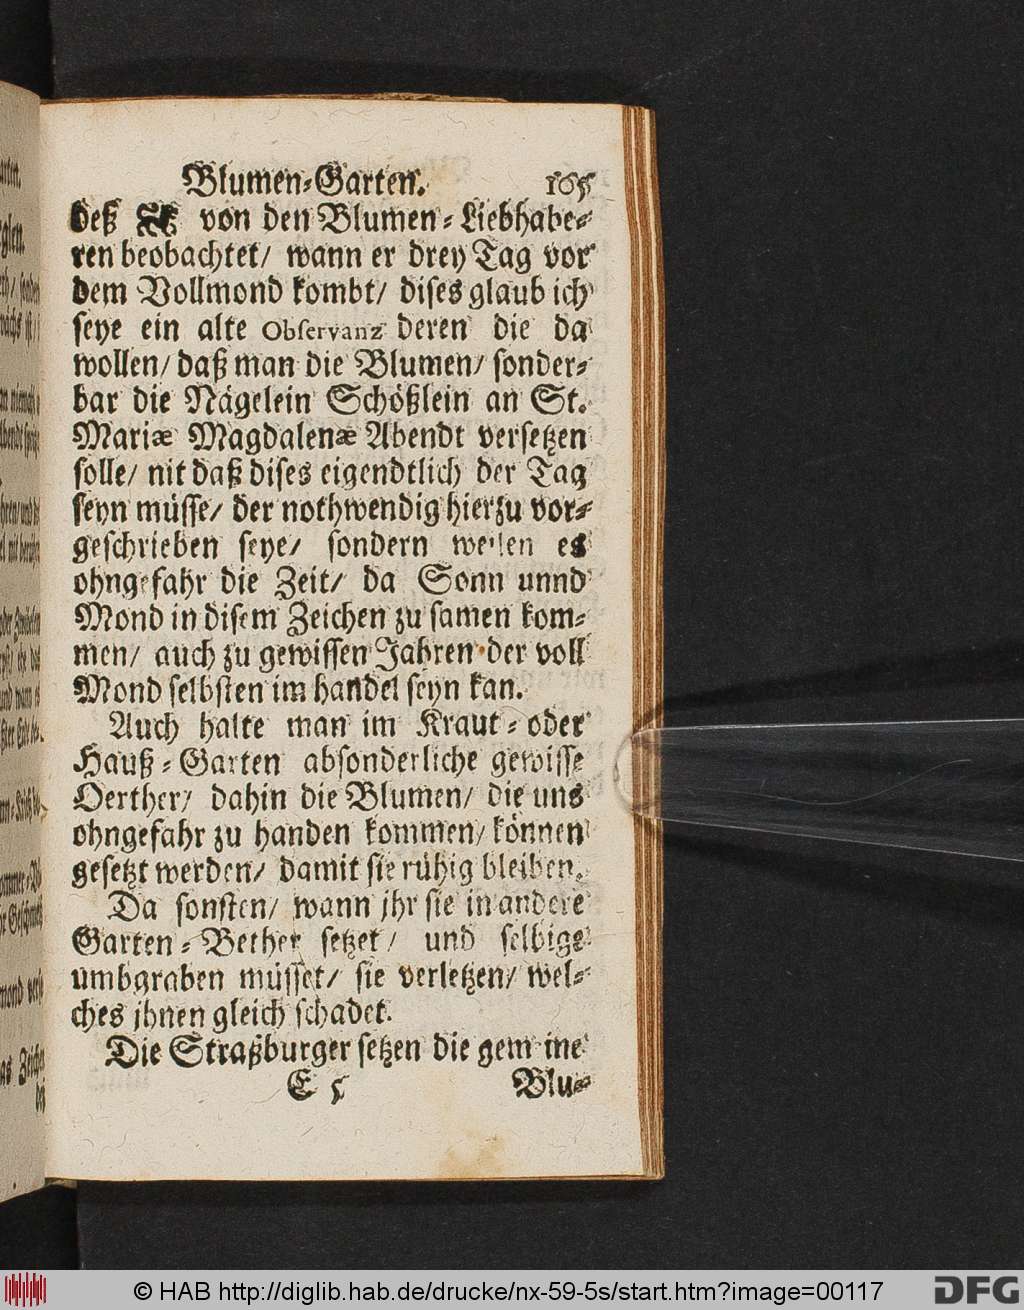 Blumen-Garten. 165
deß von den Blumen-Liebhabe-
ren beobachtet/ wann er drey Tag vor
dem Vollmond kombt/ dises glaub ich
seye ein alte Observanz deren die da
wollen/ daß man die Blumen/ sonder-
bar die Nägelein Schößlein an St.
Mariæ Magdalenæ Abendt versetzen
solle/ nit daß dises eigendtlich der Tag
seyn müsse/ der nothwendig hierzu vor-
geschrieben seye/ sondern weilen es
ohngefahr die Zeit/ da Sonn unnd
Mond in disem Zeichen zu samen kom-
men/ auch zu gewissen Jahren der voll
Mond selbsten im handel seyn kan.
Auch halte man im Kraut-oder
Hauß-Garten absonderliche gewisse
Oerther/ dahin die Blumen/ die uns
ohngefahr zu handen kommen/ können
gesetzt werden/ damit sie rühig bleiben.
Da sonsten/ wann jhr sie in andere
Garten-Bether setzet/ und selbige
umbgraben müsset/ sie verletzen/ wel-
ches jhnen gleich schadet.
Die Straßburger setzen die gemeine
E 5 Blu-
© HAB http://diglib.hab.de/drucke/nx-59-5s/start.htm?image=00117
DFG